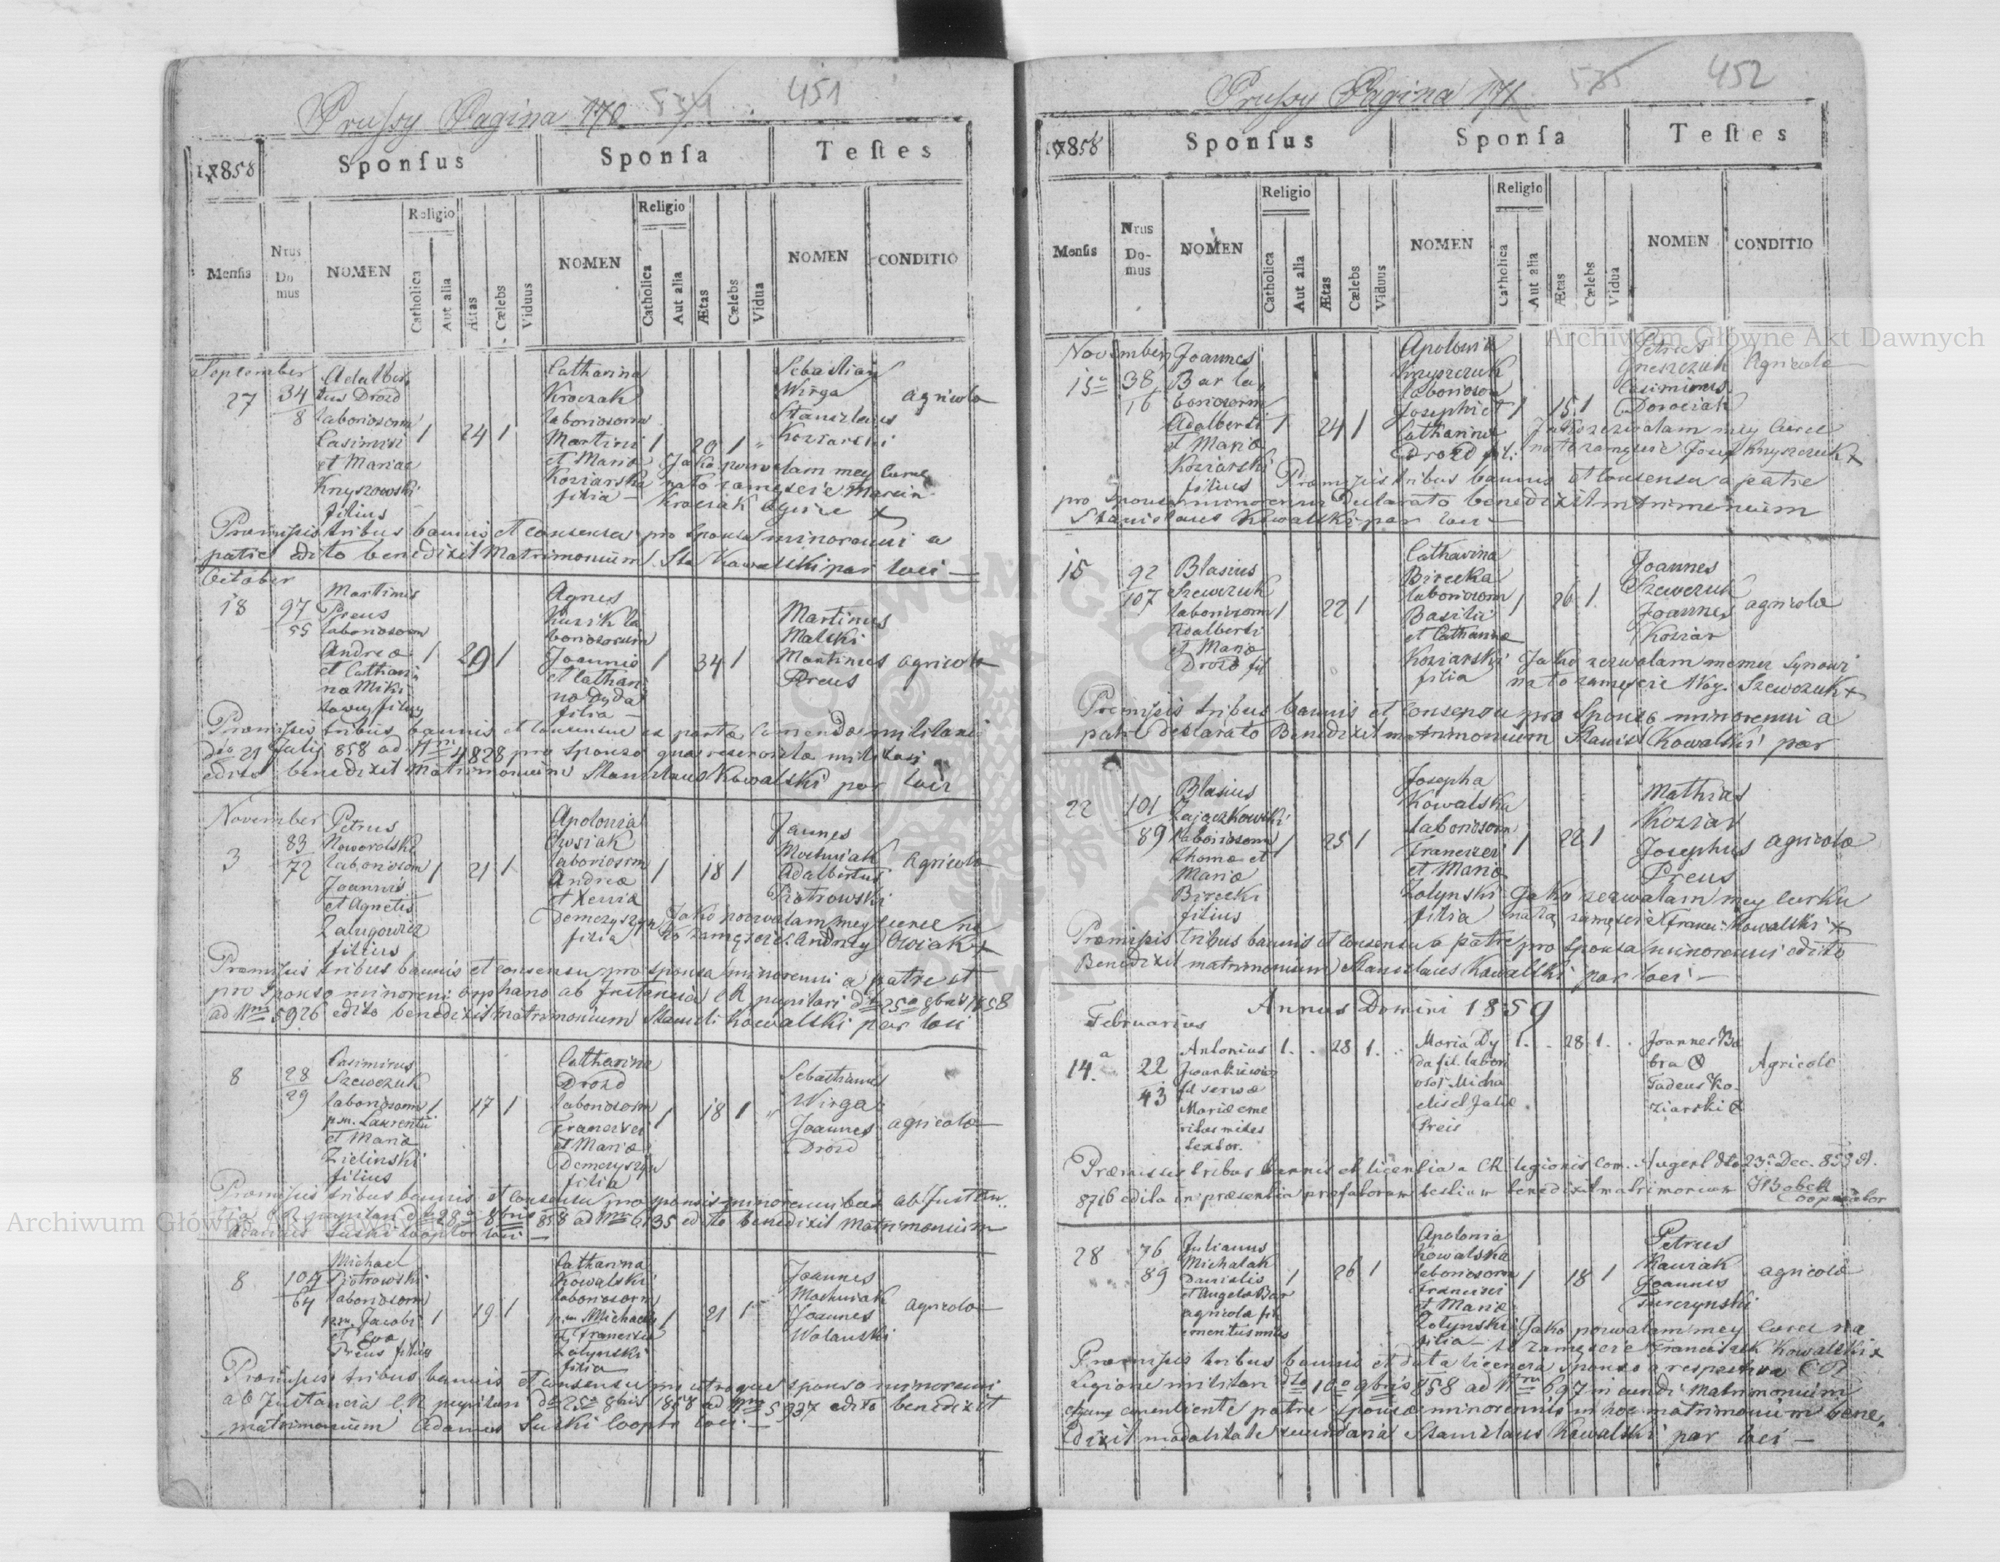 Prussy Pagina 170 451
1858
Sponsus
Sponsa
Testes
Mensis
Nrus Domus
NOMEN
Religio
Catholica
Aut alia
Ætas
Cælebs
Viduus
NOMEN
Religio
Catholica
Aut alia
Ætas
Cælebs
Vidua
NOMEN
CONDITIO
September
27
34
8
Adalber
tus Drozd
laboriosorum
Casimiri
et Mariae
Knyszowski
filius
1 24 1
Catharina
Krociak
laboriosorum
Martini
et Mariæ
Koziarska
filia
1 20 1
Sebastian
Wirga
Stanislaus
Koziarski
agricolæ
Jako pozwalam mey Curce
na to zamęscie Marcin
Krociak Oycie x
Præmissis tribus bannis et consensu pro sponsa minorenni a
patre edito benedixit Matrimonium Sta Kowalski par loci
October
18
97
55
Martinus
Preus
laboriosorum
Andreæ
et Cathari
næ Miki
filius
1 29 1
Agnes
Kusik la
boriosorum
Joannis
et Cathari
næ Dyda
filia
1 34 1
Martinus
Malski
Martinus
Preus
agricolæ
Præmissis tribus bannis et
dto 21 Julij 858 ad Nrm 4828 pro sponso qua reservista militari
edito benedixit Matrimonium Stanislaus Kowalski par loci
November
3
83
72
Petrus
Noworolski
laboriosorum
Joannis
et Agnetis
Zalugowicz
filius
1 21 1
Apolonia
Owsiak
laboriosorum
Andreæ
et Xenia
Demczyszyn
filia
1 18 1
Joannes
Mochniak
Adalbertus
Piotrowski
agricolæ
Jako pozwalam mey Curce na
to zamęscie Andrzy Owsiak x
Præmissis tribus bannis et consensu pro sponsa minorenni a patre et
pro sponso minorenni orphano ab Instancia CR pupilari dto 25a 8bris 1858
ad Nrm 5926 edito benedixit Matrimonium Stanisl Kowalski par loci
8
28
29
Casimirus
Szewczuk
laboriosorum
pm. Laurentii
et Mariæ
Zielinski
filius
1 17 1
Catharina
Drozd
laboriosorum
Francisci
et Mariæ
Demczyszyn
filia
1 18 1
Sebastianus
Wirga
Joannes
Drozd
agricolæ
Præmissis tribus bannis et consensu pro sponsis minorennibus ab Instan
tia CR pupilari dto 28a 8bris 858 ad Nrm 6135 edito benedixit Matrimonium
Adamus Suski Cooptor loci
8
104
64
Michael
Piotrowski
laboriosorum
pm. Jacobi
et Eva
Preus filius
1 19 1
Catharina
Kowalski
laboriosorum
pm Michaelis
et Francisca
Zolynski
filia
1 21 1
Joannes
Mochniak
Joannes
Wolanski
agricolæ
Præmissis tribus bannis et consensu pro utroque sponso minorenni
ab Instancia CR pupilari dto 25a 8bris 1858 ad Nrm 5937 edito benedixit
matrimonium Adamus Suski Cooptr loci
Prussy Pagina 171 535 452
1858
Sponsus
Sponsa
Testes
Mensis
Nrus Domus
NOMEN
Religio
Catholica
Aut alia
Ætas
Cælebs
Viduus
NOMEN
Religio
Catholica
Aut alia
Ætas
Cælebs
Vidua
NOMEN
CONDITIO
November
15a
38
16
Joannes
Bar la
boriosorum
Adalberti
et Mariæ
Koziarski
filius
1 24 1
Apolonia
Knyszczuk
laboriosorum
Josephi et
Catharinæ
Drozd fil.
1 15 1
Petrus
Casimirus
Dorociak
Agricolæ
Jako zezwalam mey Curce
na to zamęscie Josef Knyszczuk x
Præmissis tribus bannis et consensu a patre
pro sponsa minorenni declarato benedixit matrimonium
Stanislaus Kowalski par loci
15
92
107
Blasius
Szewczuk
laboriosorum
Adalberti
et Mariæ
Drozd fil
1 22 1
Catharina
Birecka
laboriosorum
Basilii
et Catharinæ
Koziarski
filia
1 26 1
Joannes
Szewczuk
Joannes
Koziar
agricolæ
Jako zezwalam memu Synowi
na to zamęscie Woy. Szewczuk x
Præmissis tribus bannis et consensu pro sponso minorenni a
patre declarato Benedixit matrimonium Stanisl Kowalski par
22
101
89
Blasius
Zajaczkowski
laboriosorum
Thomæ et
Mariæ
Birecki
filius
1 25 1
Josepha
Kowalska
laboriosorum
Francisci
et Mariæ
Zolynski
filia
1 22 1
Mathias
Koziar
Josephus
Preus
agricolæ
Jako zezwalam mey Curku
na to zamęscie Franci Kowalski x
Præmissis tribus bannis et consensu a patre pro sponsa minorenni edito
Benedixit matrimonium Stanislaus Kowalski par loci
Annus Domini 1859
Februarius
14.a
22
43
Antonius
Iwankiewicz
fil servæ
Mariæ eme
ritus miles
textor.
1 . . 28 1 . .
Maria Dy
da fil. labor
osor Micha
elis et Juliæ
Preis
1 . . 28 1 . .
Joannes Bo
bra
Tadeus Ko
ziarski
Agricolæ
Præmissis tribus bannis et licentia a CR legionis Com. Nugent dto 23a Dec. 858 N.
8716 edita in præsentia præfatorum testium benedixit matrimonium Bobek
Cooperator
28
76
89
Julianus
Michalak
Danielis
et Angela Bar
agricola fil
emeritus miles
1 26 1
Apolonia
Kowalska
laboriosorum
Francisci
et Mariæ
Zolynski
filia
1 18 1
Petrus
Kaniak
Joannes
Turczynski
agricolæ
Jako pozwalam mey Curce na
to zamęscie Franciszek Kowalski x
Præmissis tribus bannis et data licencia sponso a respectiva CR
Legione militari dto 10a 9bris 858 ad Nrm 697 ineundi Matrimonium
etiam consentiente patre sponsæ minorennis in hoc matrimonium bene
dixit modalitate secundaria Stanislaus Kowalski par loci
Archiwum Główne Akt Dawnych
Archiwum Główne Akt Dawnych